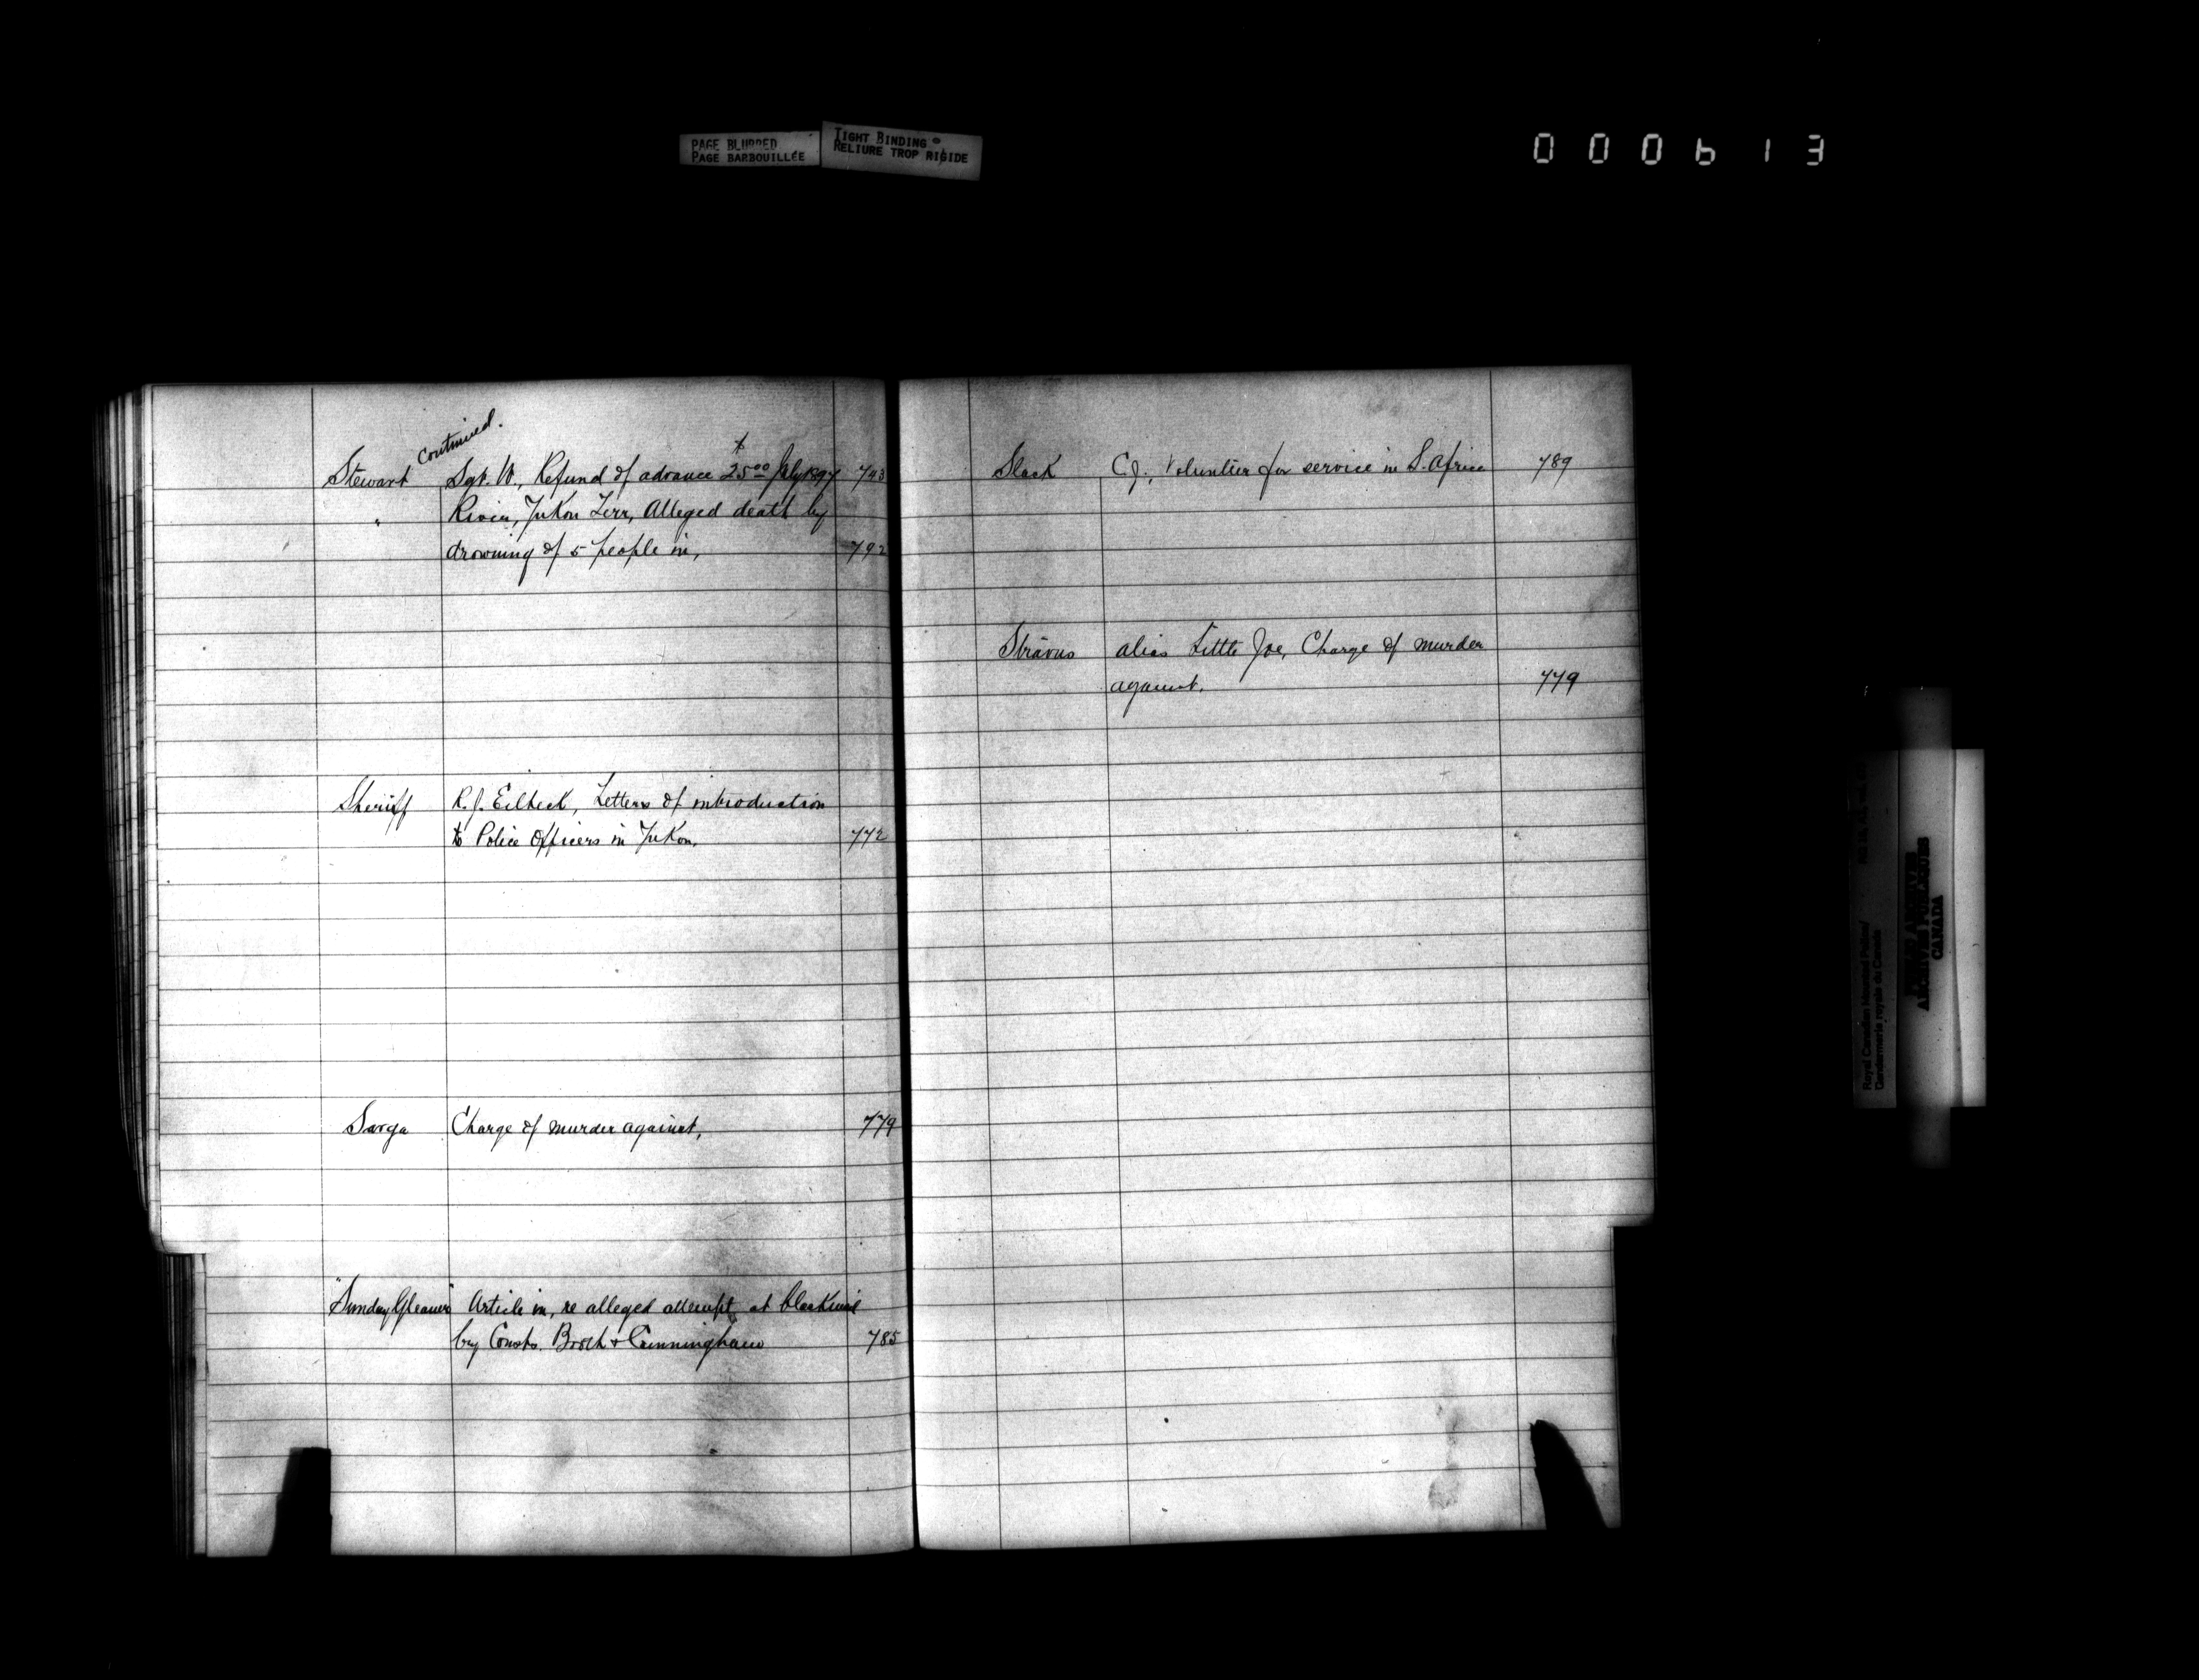 PAGE BLURRED
PAGE BARBOUILLÉE
TIGHT BINDING
RELIURE TROP RIGIDE
000613
continued.
Stewart Sgt. W., Refund of advance $25.00 July 1897 743
" River, Yukon Terr, Alleged death by
drowning of 5 people in, 792
Sheriff R. J. Eilbeck, Letters of introduction
to Police Officers in Yukon. 772
Sarga Charge of murder against, 779
"Sunday Gleaner" Article in, re alleged attempt at blackmail
by Consts. Broth & Cunningham 785
Slack C.J., Volunteer for service in S. Africa 789
Stravus alias Little Joe, Charge of murder
against. 779
Royal Canadian Mounted Police/
Gendarmerie royale du Canada
ARCHIVES PUBLIQUES
CANADA